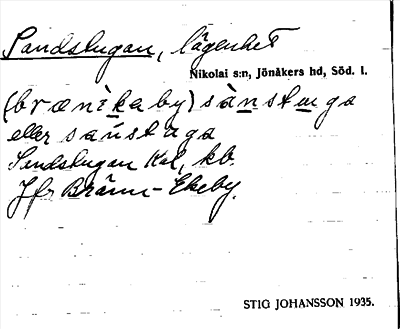 Sandstugan, lägenhet
Nikolai s:n, Jönåkers hd, Söd. l.
(brænìkaby) sànstuga
eller sanstuga
Sandstugan Kal, kb.
Jfr Bränn-Ekeby.
STIG JOHANSSON 1935.